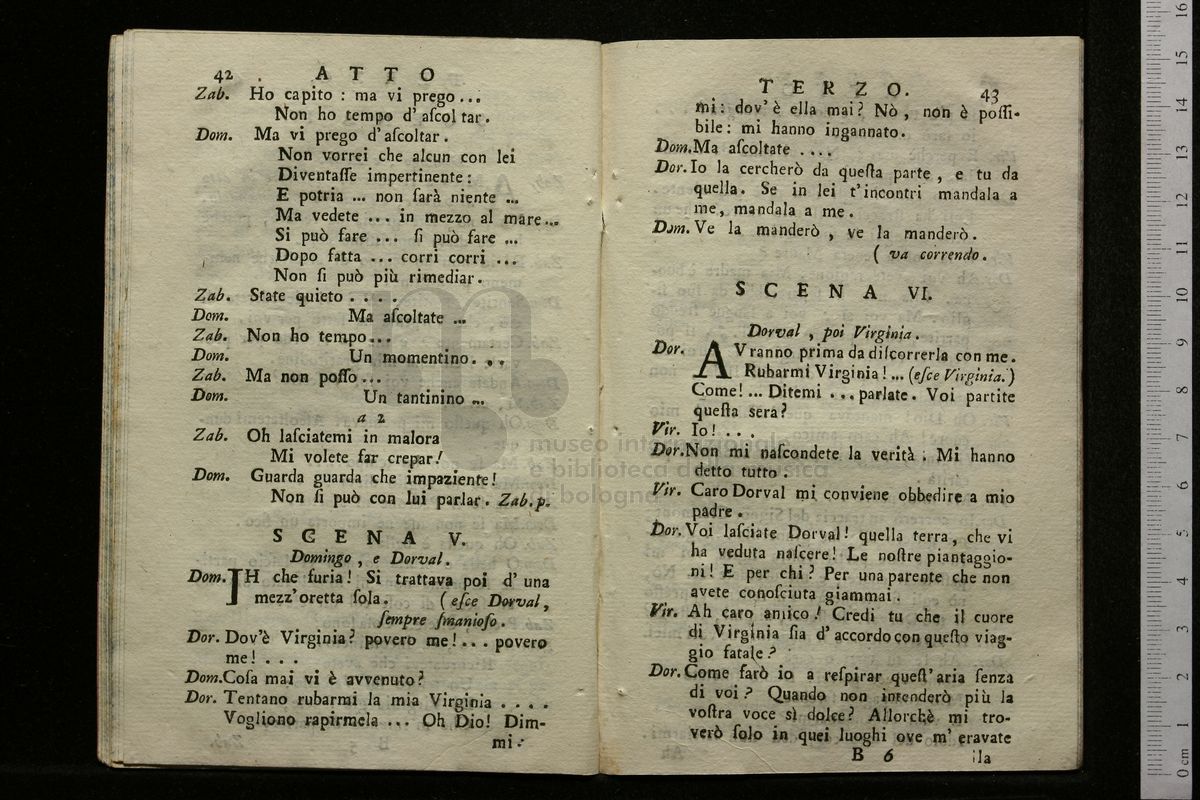 42 . ATTO
Zab. Ho capito : ma vi prego ...
Non ho tempo d' aſcoltar.
Dom. Ma vi prego d'aſcoltar.
Non vorrei che alcun con lei
Diventaſſe impertinente:
E potria ... non ſarà niente ...
Ma vedete ... in mezzo al mare...
Si può fare ... ſi può fare ...
Dopo fatta ... corri corri ...
Non ſi può più rimediar.
Zab. State quieto ....
Dom. Ma aſcoltate ...
Zab. Non ho tempo...
Dom. Un momentino...
Zab. Ma non poſſo ...
Dom. Un tantinino ...
a 2
Zab. Oh laſciatemi in malora
Mi volete far crepar!
Dom. Guarda guarda che impaziente!
Non ſi può con lui parlar. Zab.p.
SCENA V.
Domingo , e Dorval.
Dom. IH che furia! Si trattava poi d' una
mezz'oretta ſola. ( eſce Dorval,
ſempre ſmanioſo.
Dor. Dov'è Virginia? povero me!... povero
me! ...
Dom.Coſa mai vi è avvenuto?
Dor. Tentano rubarmi la mia Virginia ....
Vogliono rapirmela ... Oh Dio! Dim-
mi:
TERZO. 43
mi: dov' è ella mai? Nò, non è poſſi-
bile: mi hanno ingannato.
Dom.Ma aſcoltate ....
Dor.Io la cercherò da queſta parte, e tu da
quella. Se in lei t'incontri mandala a
me, mandala a me.
Dom.Ve la manderò, ve la manderò.
( va correndo.
SCENA VI.
Dorval , poi Virginia.
Dor. AVranno prima da diſcorrerla con me.
Rubarmi Virginia! ... (eſce Virginia.)
Come! ... Ditemi ... parlate. Voi partite
queſta sera?
Vir. Io! ...
Dor.Non mi naſcondete la verità. Mi hanno
detto tutto.
Vir. Caro Dorval mi conviene obbedire a mio
padre.
Dor.Voi laſciate Dorval! quella terra, che vi
ha veduta naſcere! Le noſtre piantaggio-
ni! E per chi? Per una parente che non
avete conoſciuta giammai.
Vir. Ah caro amico! Credi tu che il cuore
di Virginia ſia d' accordo con queſto viag-
gio fatale?
Dor.Come farò io a reſpirar queſt' aria ſenza
di voi? Quando non intenderò più la
voſtra voce sì dolce? Allorchè mi tro-
verò ſolo in quei luoghi ove m' eravate
B 6 la
museo internazionale
e biblioteca della musica
di bologna
16
15
14
13
12
11
10
9
8
7
6
5
4
3
2
1
0 cm